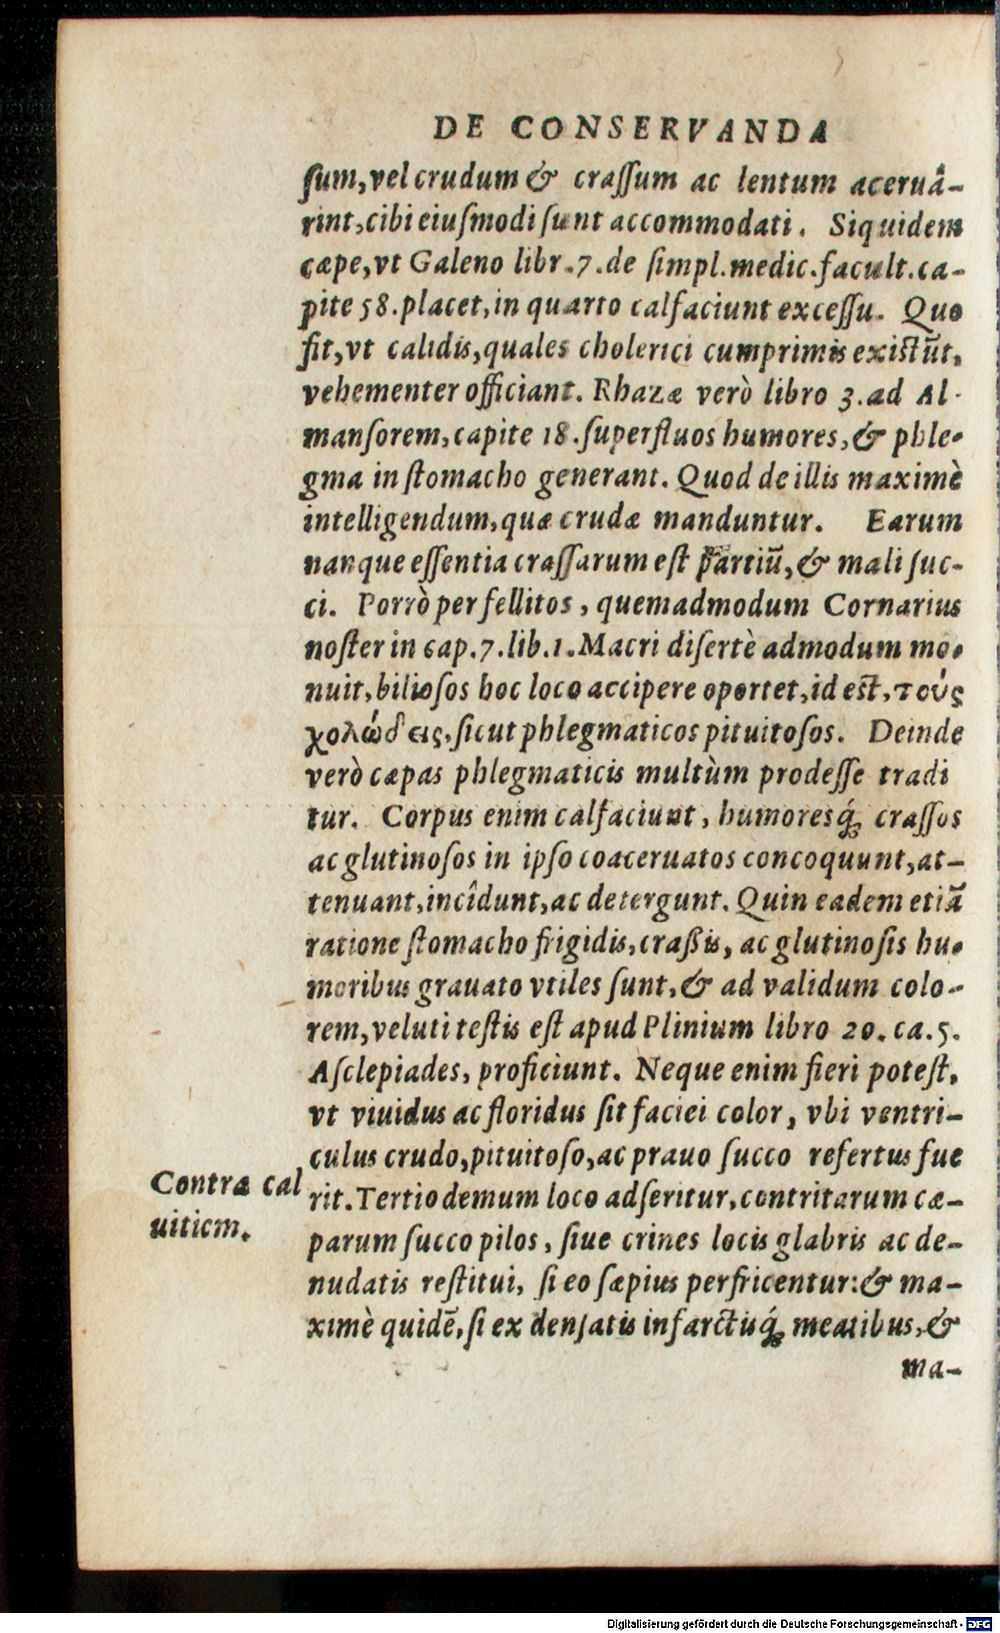 DE CONSERVANDA
ſum,vel crudum & craſſum ac lentum aceruâ-
rint,cibi eiuſmodi ſunt accommodati. Siquidem
cæpe,vt Galeno libr.7.de ſimpl.medic.facult.ca-
pite 58.placet,in quarto calfaciunt exceſſu. Quo
fit,vt calidis,quales cholerici cumprimis existūt,
vehementer officiant. Rhazæ verò libro 3.ad Al-
manſorem,capite 18.ſuperfluos humores,& phle-
gma in ſtomacho generant. Quod de illis maximè
intelligendum,quæ crudæ manduntur. Earum
nanque eſſentia craſſarum eſt partiū,& mali ſuc-
ci. Porrò per fellitos, quemadmodum Cornarius
noſter in cap.7.lib.1.Macri diſertè admodum mo-
nuit,bilioſos hoc loco accipere oportet,id est,τοὺς
χολώδεις,ſicut phlegmaticos pituitoſos. Deinde
verò cæpas phlegmaticis multùm prodeſſe tradi
tur. Corpus enim calfaciunt, humoresq́; craſſos
ac glutinoſos in ipſo coaceruatos concoquunt,at-
tenuant,incîdunt,ac detergunt. Quin eadem etiā
ratione ſtomacho frigidis,craßis, ac glutinoſis hu-
moribus grauato vtiles ſunt,& ad validum colo-
rem,veluti teſtis eſt apud Plinium libro 20. ca.5.
Aſclepiades, proficiunt. Neque enim fieri poteſt,
vt viuidus ac floridus ſit faciei color, vbi ventri-
culus crudo,pituitoſo,ac prauo ſucco refertus fue
rit. Tertio demum loco adſeritur,contritarum cæ-
parum ſucco pilos, ſiue crines locis glabris ac de-
nudatis reſtitui, ſi eo ſæpius perfricentur:& ma-
ximè quidē,ſi ex denſatis infarctisq́; meatibus,&
ma-
Contra cal
uitiem.
Digitalisierung gefördert durch die Deutsche Forschungsgemeinschaft - DFG